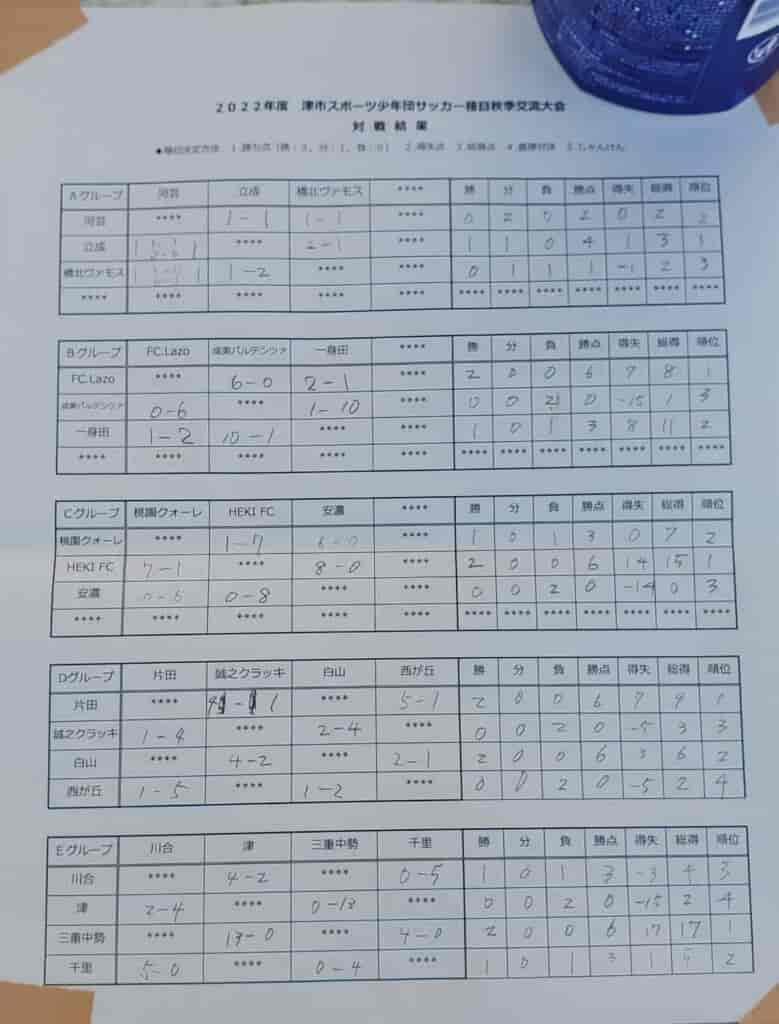 2022年度 津市スポーツ少年団サッカー種目秋季交流大会
対戦結果
Aグループ 河芸 立成 橋北ヴァモス **** 勝 分 負 勝点 得失 総得 順位
河芸 **** 1-1 1-1 0 2 0 2 0 2 2
立成 1 1 **** 2-1 1 1 0 4 1 3 1
橋北ヴァモス 1 1 1-2 **** **** 0 1 1 1 -1 2 3
**** **** **** **** **** **** **** **** **** **** **** ****
Bグループ FC.Lazo 成美パルテンツァ 一身田 **** 勝 分 負 勝点 得失 総得 順位
FC.Lazo **** 6-0 2-1 2 0 0 6 7 8 1
成美パルテンツァ 0-6 **** 1-10 0 0 2 0 -15 1 3
一身田 1-2 10-1 **** 1 0 1 3 8 11 2
**** **** **** **** **** **** **** **** **** **** **** ****
Cグループ 桃園クォーレ HEKI FC 安濃 **** 勝 分 負 勝点 得失 総得 順位
桃園クォーレ **** 1-7 6-0 1 0 1 3 0 7 2
HEKI FC 7-1 **** 8-0 2 0 0 6 14 15 1
安濃 0-6 0-8 **** 0 0 2 0 -14 0 3
**** **** **** **** **** **** **** **** **** **** **** ****
Dグループ 片田 誠之クラッキ 白山 西が丘 勝 分 負 勝点 得失 総得 順位
片田 **** 4-1 **** 5-1 2 0 0 6 7 9 1
誠之クラッキ 1-4 **** 2-4 **** 0 0 2 0 -5 3 3
白山 **** 4-2 **** 2-1 2 0 0 6 3 6 2
西が丘 1-5 **** 1-2 **** 0 0 2 0 -5 2 4
Eグループ 川合 津 三重中勢 千里 勝 分 負 勝点 得失 総得 順位
川合 **** 4-2 **** 0-5 1 0 1 3 -3 4 3
津 2-4 **** 0-13 **** 0 0 2 0 -15 2 4
三重中勢 **** 13-0 **** 4-0 2 0 0 6 17 17 1
千里 5-0 **** 0-4 **** 1 0 1 3 1 5 2